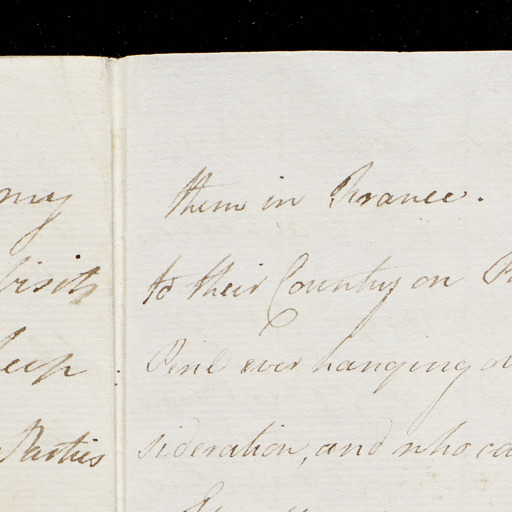 my
visits
keep
Parties
them in France.
to their Country on
Peril ever hanging
sideration, and who